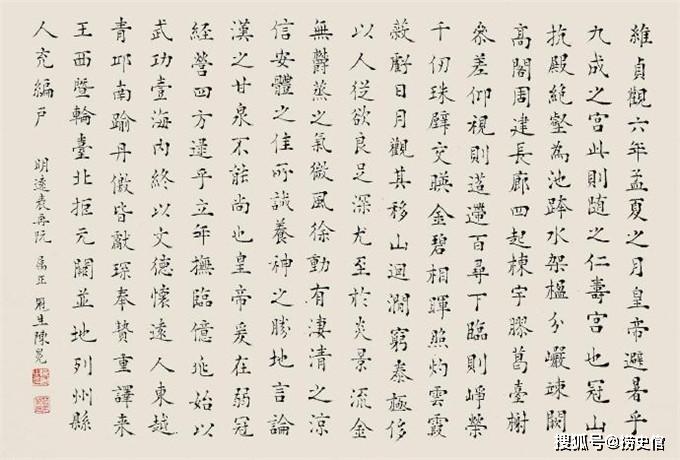 維貞觀六年孟夏之月皇帝避暑乎
九成之宮此則随之仁壽宮也冠山
抗殿絶壑為池跨水架楹分巖竦闕
高閣周建長廊四起棟宇膠葛臺榭
叅差仰視則迢遰百尋下臨則崢嶸
千仞珠璧交暎金碧相暉照灼雲霞
蔽虧日月觀其移山迴澗窮泰極侈
以人從欲良足深尤至於炎景流金
無欝蒸之氣微風徐動有淒清之涼
信安體之佳所誠養神之勝地言論
漢之甘泉不能尚也皇帝爰在弱冠
經營四方逮乎立年撫臨億兆始以
武功壹海內終以文德懷遠人東越
青邱南踰丹徼皆獻琛奉贄重譯来
王西暨輪臺北拒元闕並地列州縣
人充編戶 明遠 屬正 陳冕
搜狐号@捞史官